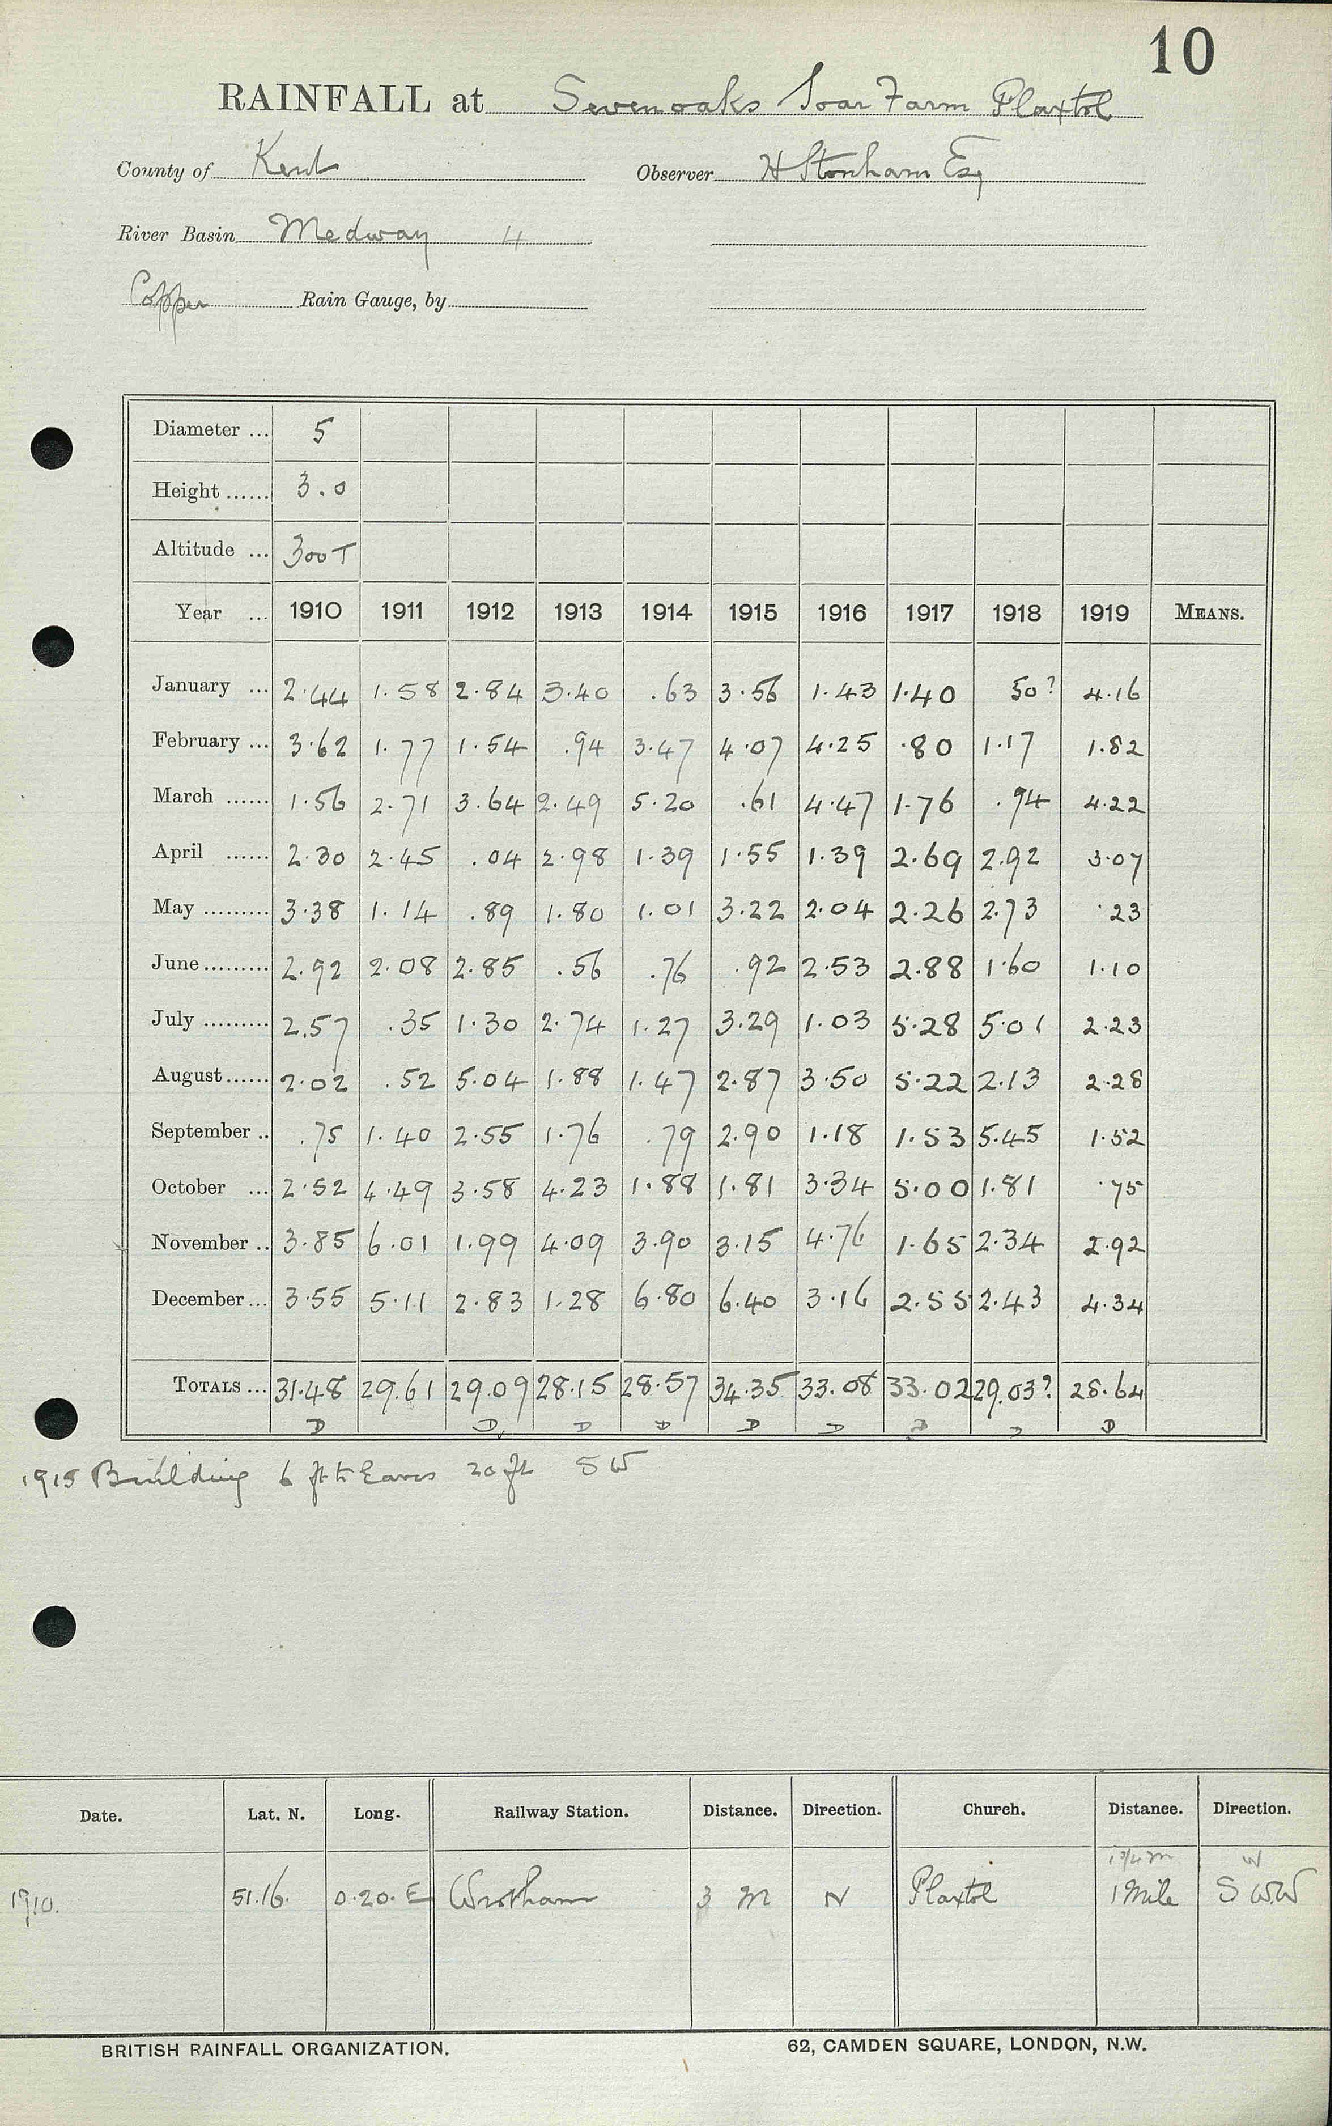 10
RAINFALL at Sevenoaks Soar Farm Plaxtol
County of Kent Observer H Stonham Esq
River Basin Medway 4
Copper Rain Gauge, by
Diameter ... 5
Height ...... 3.0
Altitude ... 300 T
Year ... 1910 1911 1912 1913 1914 1915 1916 1917 1918 1919 MEANS.
January ... 2.44 1.58 2.84 3.40 .63 3.56 1.43 1.40 50? 4.16
February ... 3.62 1.77 1.54 .94 3.47 4.07 4.25 .80 1.17 1.82
March ...... 1.56 2.71 3.64 2.49 5.20 .61 4.47 1.76 .94 4.22
April ...... 2.30 2.45 .04 2.98 1.39 1.55 1.39 2.69 2.92 3.07
May ......... 3.38 1.14 .89 1.80 1.01 3.22 2.04 2.26 2.73 .23
June ......... 2.92 2.08 2.85 .56 .76 .92 2.53 2.88 1.60 1.10
July ......... 2.57 .35 1.30 2.74 1.27 3.29 1.03 5.28 5.01 2.23
August ...... 2.02 .52 5.04 1.88 1.47 2.87 3.50 5.22 2.13 2.28
September .. .75 1.40 2.55 1.76 .79 2.90 1.18 1.53 5.45 1.52
October ... 2.52 4.49 3.58 4.23 1.88 1.81 3.34 5.00 1.81 .75
November .. 3.85 6.01 1.99 4.09 3.90 3.15 4.76 1.65 2.34 2.92
December ... 3.55 5.11 2.83 1.28 6.80 6.40 3.16 2.55 2.43 4.34
TOTALS ... 31.48 29.61 29.09 28.15 28.57 34.35 33.08 33.02 29.03? 28.64
D D D D D D D D D
1915 Building 6 ft to Eaves 20 ft SW
Date. Lat. N. Long. Railway Station. Distance. Direction. Church. Distance. Direction.
1 3/4 m W
1910. 51.16. 0.20. E Wrotham 3 M N Plaxtol 1 Mile S W.W
BRITISH RAINFALL ORGANIZATION. 62, CAMDEN SQUARE, LONDON, N.W.